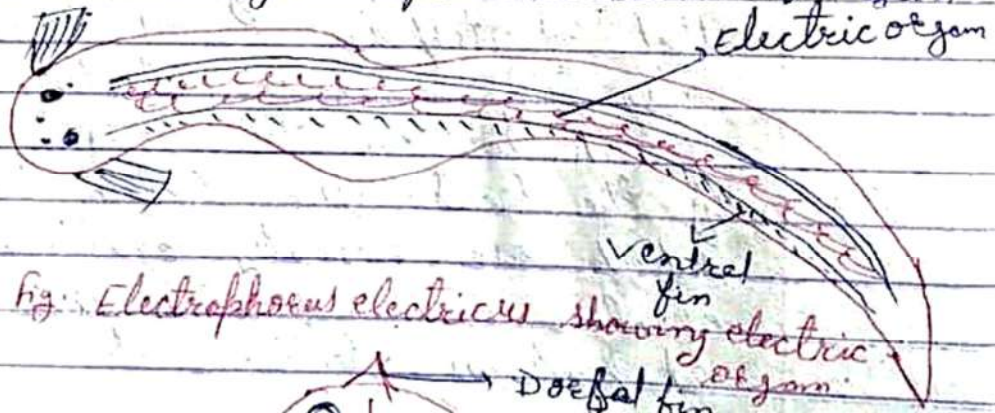 Electric organ
Ventral
fin
fig. Electrophorus electricus showing electric
organ.
Dorsal fin